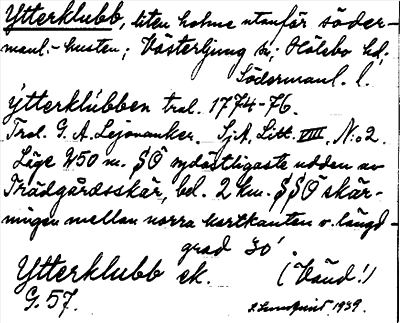 Ytterklubb, liten holme utanför söder-
manl.-kusten; Västerljung sn; Hölebo hd;
Södermanl. l.
Ytterklubben tral. 1774-76.
Tral. G. A. Lejonanker. SjA, Litt. VIII, N:o 2.
Läge 450 m. SO sydöstligaste udden av
Trädgårdsskär, bel. 2 km. SSO skär-
ningen mellan norra kartkanten o. längd-
grad 30'
Ytterklubb ek. (Vänd!)
G. 57.
1939.